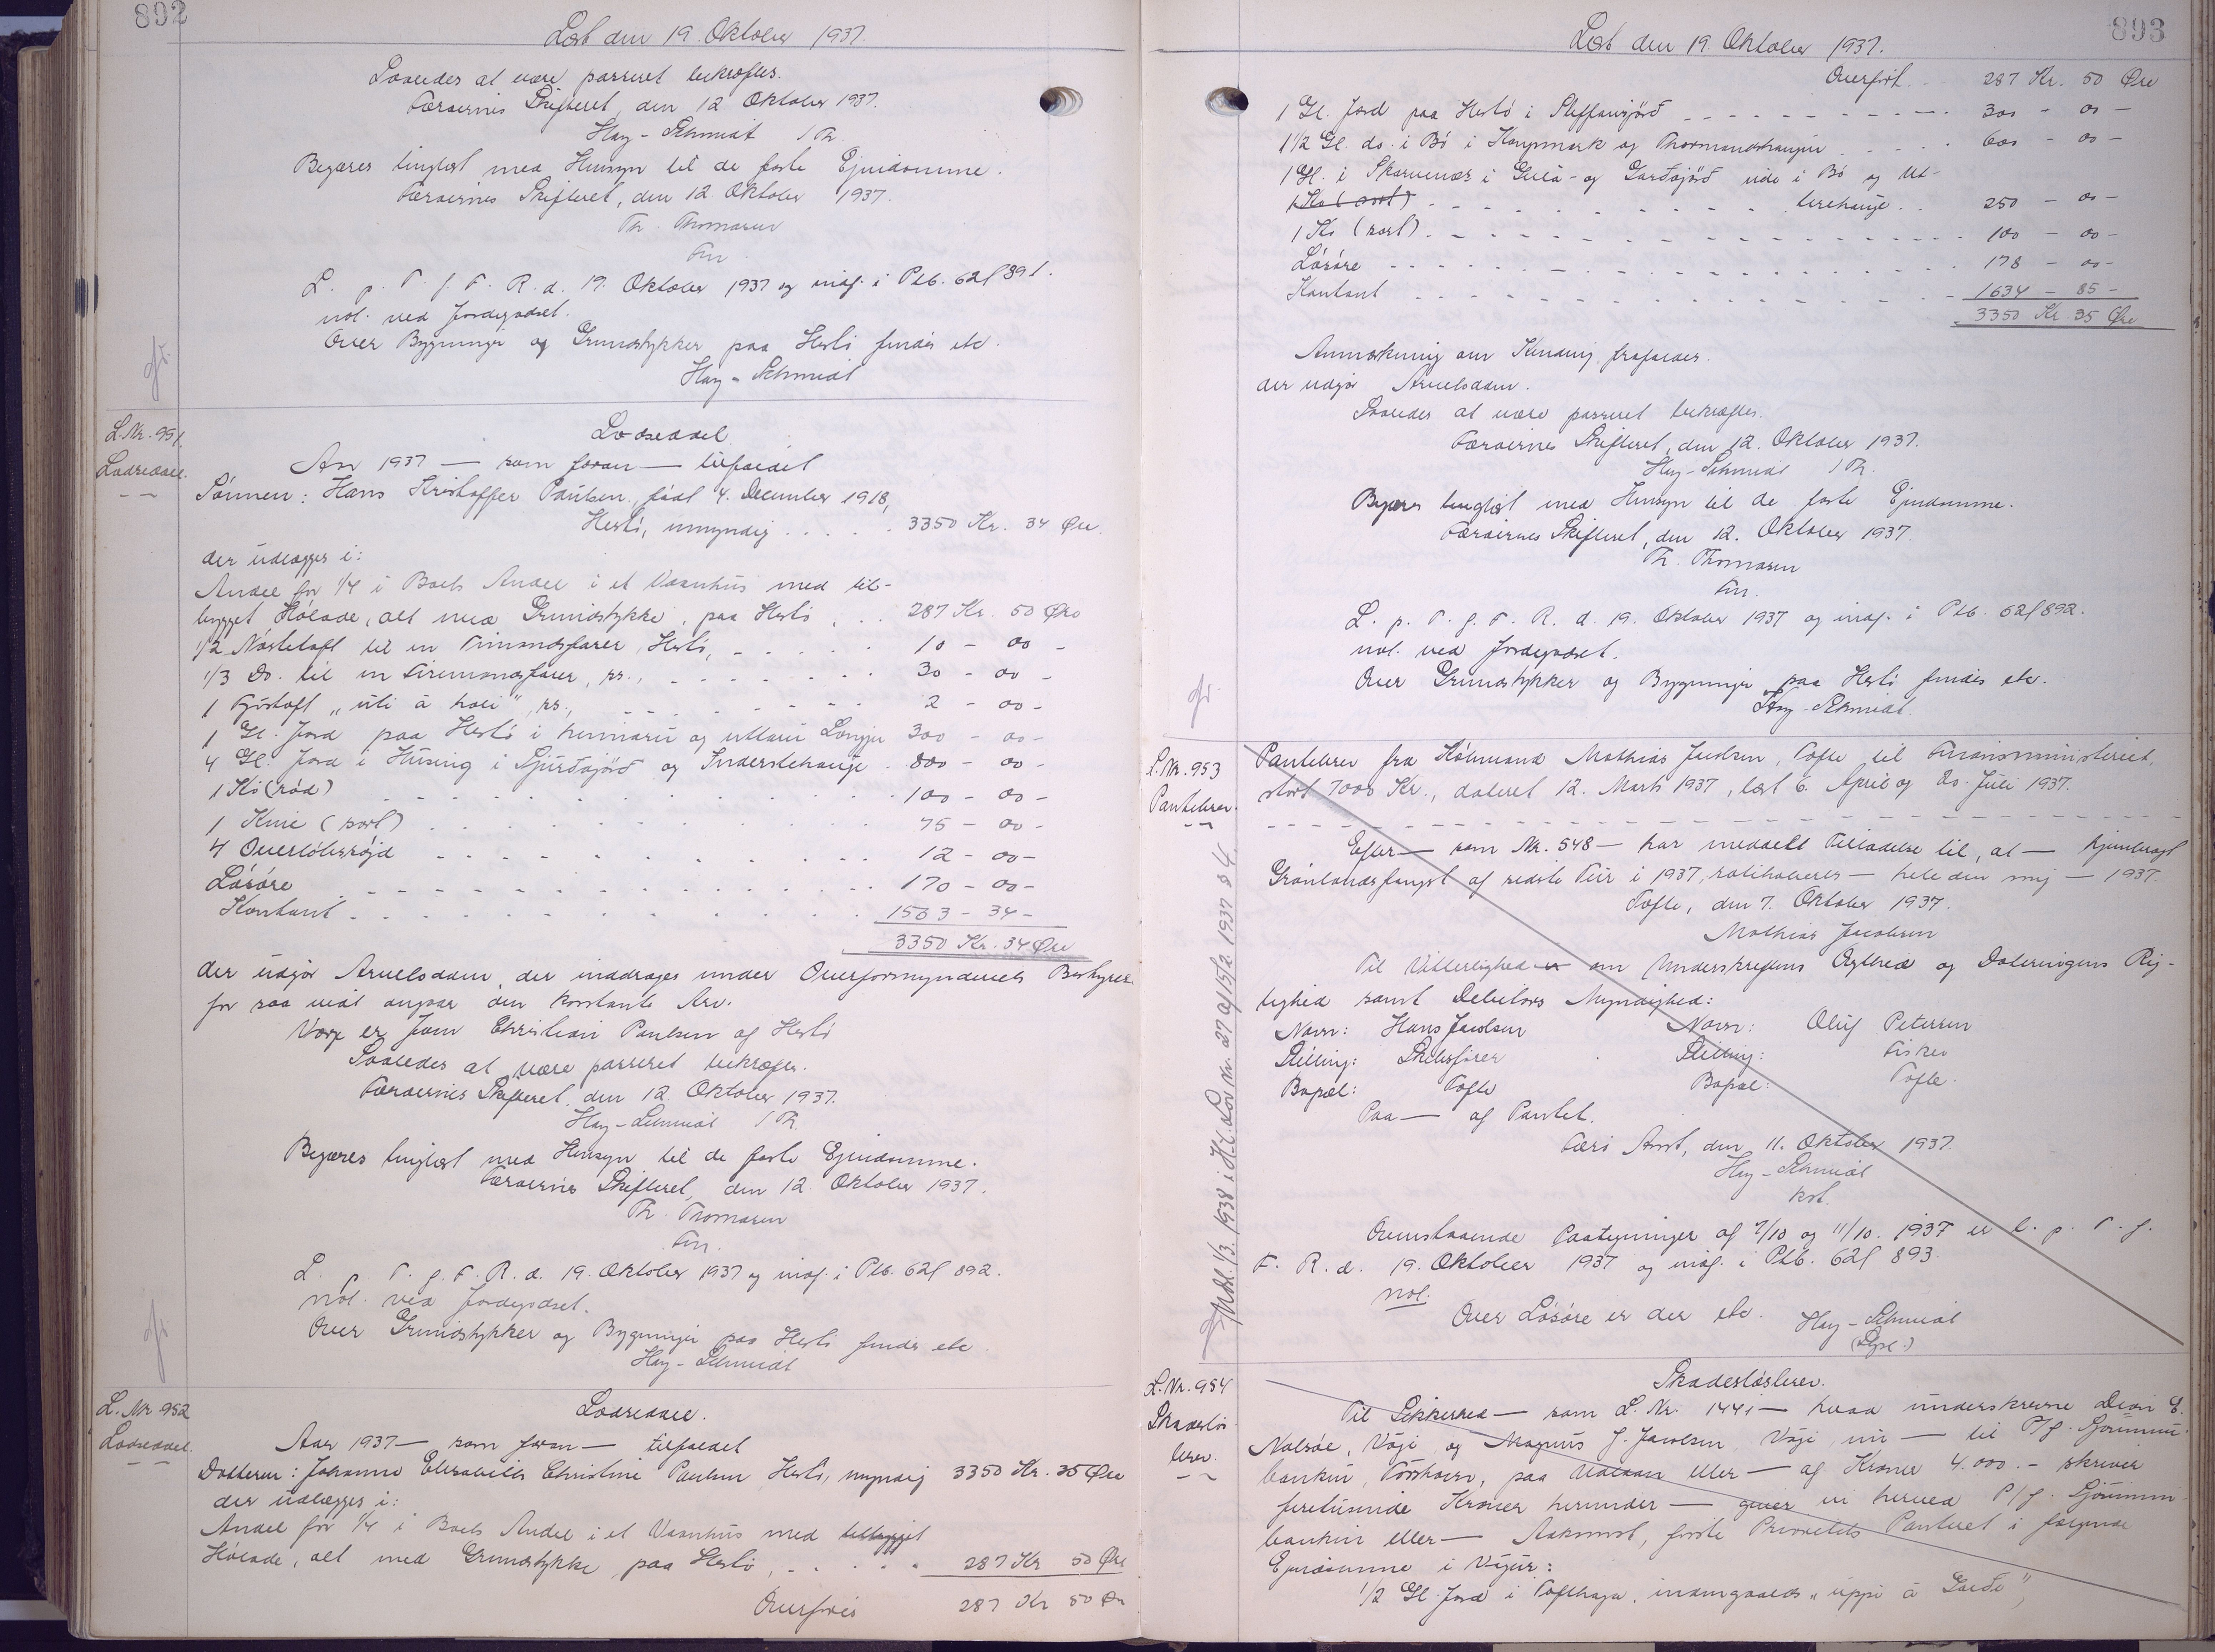 892
Læst den 19. Oktober 1937.
Saaledes at være passeret bekræftes.
Færøernes Skifteret, den 12 Oktober 1937.
Hay-Schmidt / Th.
Begæres tinglæst med Hensyn til de faste Ejendomme.
Færøernes Skifteret, den 12 Oktober 1937.
Th. Thomasen
Fm.
L. p. T. f. F. R. d. 19. Oktober 1937 og indf. i Ptb. 62 f 891.
not. ved Jordegodset.
Over Bygninger og Grundstykker paa Hestö findes etc.
Hay-Schmidt
L. Nr. 951.
Lodseddel.
Lodseddel.
Aar 1937 — som foran — tilfaldet
Sønnen: Hans Kristoffer Paulsen, født 4. December 1918,
Hestö, umyndig . . . . . 3350 Kr. 34 Øre.
der udlægges i:
Andel for 1/4 i Boets Andel i et Vaanhus med til-
bygget Hølade, alt med Grundstykke, paa Hestö, . . 287 Kr. 50 Øre
1/2 Nøstetoft til en Trimandsfarer, Hestö, - - - - 10 - 00 -
1/3 Do. til en Firemandsfarer, ss., - - - - 30 - 00 -
1 Gjóstoft "úti á hæli", ss., - - - - 2 - 00 -
1 Gl. Jord paa Hestö i heimaru og uttaru Longju 300 - 00 -
4 Gl. Jord i Húsing i Sjúrðajörð og Inderstehauge . 800 - 00 -
1 Ko (rød) - - - - 100 - 00 -
1 Kvie (sort) . . . . 75 - 00 -
4 Overløbersøjd - - - - 12 - 00 -
Løsøre - - - - 170 - 00 -
Kontant - - - - 1563 - 34 -
3350 Kr. 34 Øre
der udgør Arvelodden, der inddrages under Overformynderiets Bestyrelse
for saa vidt angaar den kontante Arv.
Værge er Joen Christian Paulsen af Hestö
Saaledes at være passeret bekræftes.
Færøernes Skifteret, den 12 Oktober 1937.
Hay-Schmidt / Th.
Begæres tinglæst med Hensyn til de faste Ejendomme.
Færøernes Skifteret, den 12. Oktober 1937.
Th. Thomasen
Fm.
L. p. T. f. F. R. d. 19. Oktober 1937 og indf. i Ptb. 62 f 892.
not. ved Jordegodset.
Over Grundstykker og Bygninger paa Hestö findes etc
Hay-Schmidt
L. Nr 952
Lodseddel.
Lodseddel.
Aar 1937 — som foran — tilfaldet
Datteren: Johanne Elisabeth Christine Paulsen Hestö, myndig 3350 Kr. 35 Øre
der udlægges i:
Andel for 1/4 i Boets Andel i et Vaanhus med tilbygget
Hølade, alt med Grundstykke, paa Hestö, - . . . 287 Kr 50 Øre
Overføres 287 Kr 50 Øre
893
Læst den 19. Oktober 1937.
Overført . . 287 Kr. 50 Øre
1 Gl. Jord paa Hestö i Steffansjörð - - - - 300 - 00 -
1 1/2 Gl. do. i Bö i Kongsmark og Thormandshaugen . . . . 600 - 00 -
1 Gl. i Skarvenes i Gleia- og Garðajörð ude i Bö og Ut-
1 Ko (sort) - - - - terehauge . . 250 - 00 -
1 Ko (sort) . - - - - 100 - 00 -
Løsøre - - - - 178 - 00 -
Kontant - - - - 1634 - 85 -
3350 Kr 35 Øre
Anmærkning om Kending frafaldes.
der udgør Arvelodden.
Saaledes at være passeret bekræftes.
Færøernes Skifteret, den 12. Oktober 1937.
Hay-Schmidt / Th.
Begæres tinglæst med Hensyn til de faste Ejendomme.
Færøernes Skifteret, den 12. Oktober 1937.
Th. Thomasen
Fm.
L. p. T. f. F. R. d. 19. Oktober 1937 og indf. i Ptb. 62 f 892.
not. ved Jordegodset.
Over Grundstykker og Bygninger paa Hestö findes etc.
Hay-Schmidt.
L. Nr. 953
Pantebrev.
Pantebrev fra Købmand Mathias Jacobsen, Tofte til Finansministeriet,
stort 7000 Kr., dateret 12. Marts 1937, læst 6. April og 20. Juli 1937.
Efter — som Nr. 548 — har meddelt Tilladelse til, at — hjembragt
Grønlandsfangst af sidste Tur i 1937, ratihaberes — hele den mig — 1937.
Tofte, den 7. Oktober 1937.
Mathias Jacobsen
Til Vitterlighed om Underskriftens Ægthed og Dateringens Rig-
tighed samt Debitors Myndighed:
Navn: Hans Jacobsen Navn: Oluf Petersen
Stilling: Skibsfører Stilling: Fisker
Bopæl: Tofte Bopæl: Tofte.
Paa — af Pantet.
Færø Amt, den 11. Oktober 1937.
Hay-Schmidt
kst.
Ovenstaaende Paategninger af 7/10 og 11/10. 1937 er l. p. T. f.
F. R. d. 19. Oktober 1937 og indf. i Ptb. 62 f 893.
not.
Over Løsøre er der etc. Hay-Schmidt
(Gyrl.)
Udsl. 1/3. 1938 i H. t. Lov nr. 27 af 15/2 1937 § 4.
L. Nr. 954
Skadesløs
brev.
Skadesløsbrev.
Til Sikkerhed — som L. Nr. 1441 — hvad underskrevne Dion E.
Nolsøe, Vági og Magnus J. Jacobsen, Vági, nu — til P/f. Sjóvinnu-
bankin, Tórshavn, paa Udlaan eller — af Kroner 4.000.- skriver
firetusinde Kroner herunder — giver vi herved P/f. Sjóvinnu-
bankin eller — Aakomst, første Prioritets Panteret i følgende
Ejendomme i Vágur:
1/2 Gl. Jord i Tofthaga, indengaards "uppi á Gerði",